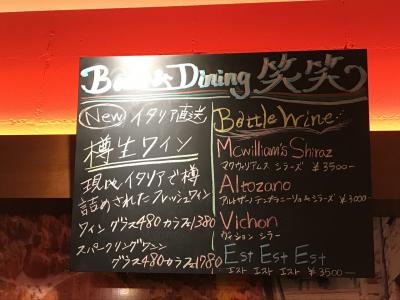 Dining 笑笑
New イタリア直送
樽生ワイン
現地イタリアで樽
詰めされたフレッシュワイン
ワイン グラス480 カラフェ1380
スパークリングワイン
グラス680 カラフェ1780
Bottle Wine
Mcwilliam's Shiraz
マクウィリアムス シラーズ ¥3500-
Altozano
アルトザーノ テンプラニーリョ&シラーズ ¥3000
Vichon
ヴィション シラー
Est Est Est
エスト エスト エスト ¥3500-